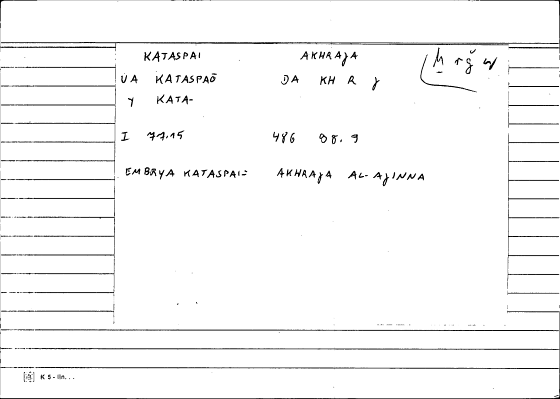 KATASPAI AKHRAJA
ŪA KATASPAŌ DA KH R J
Y KATA-
I 77.15 486 88.9
EMBRYA KATASPAI= AKHRAJA AL-AJINNA
K 5 -